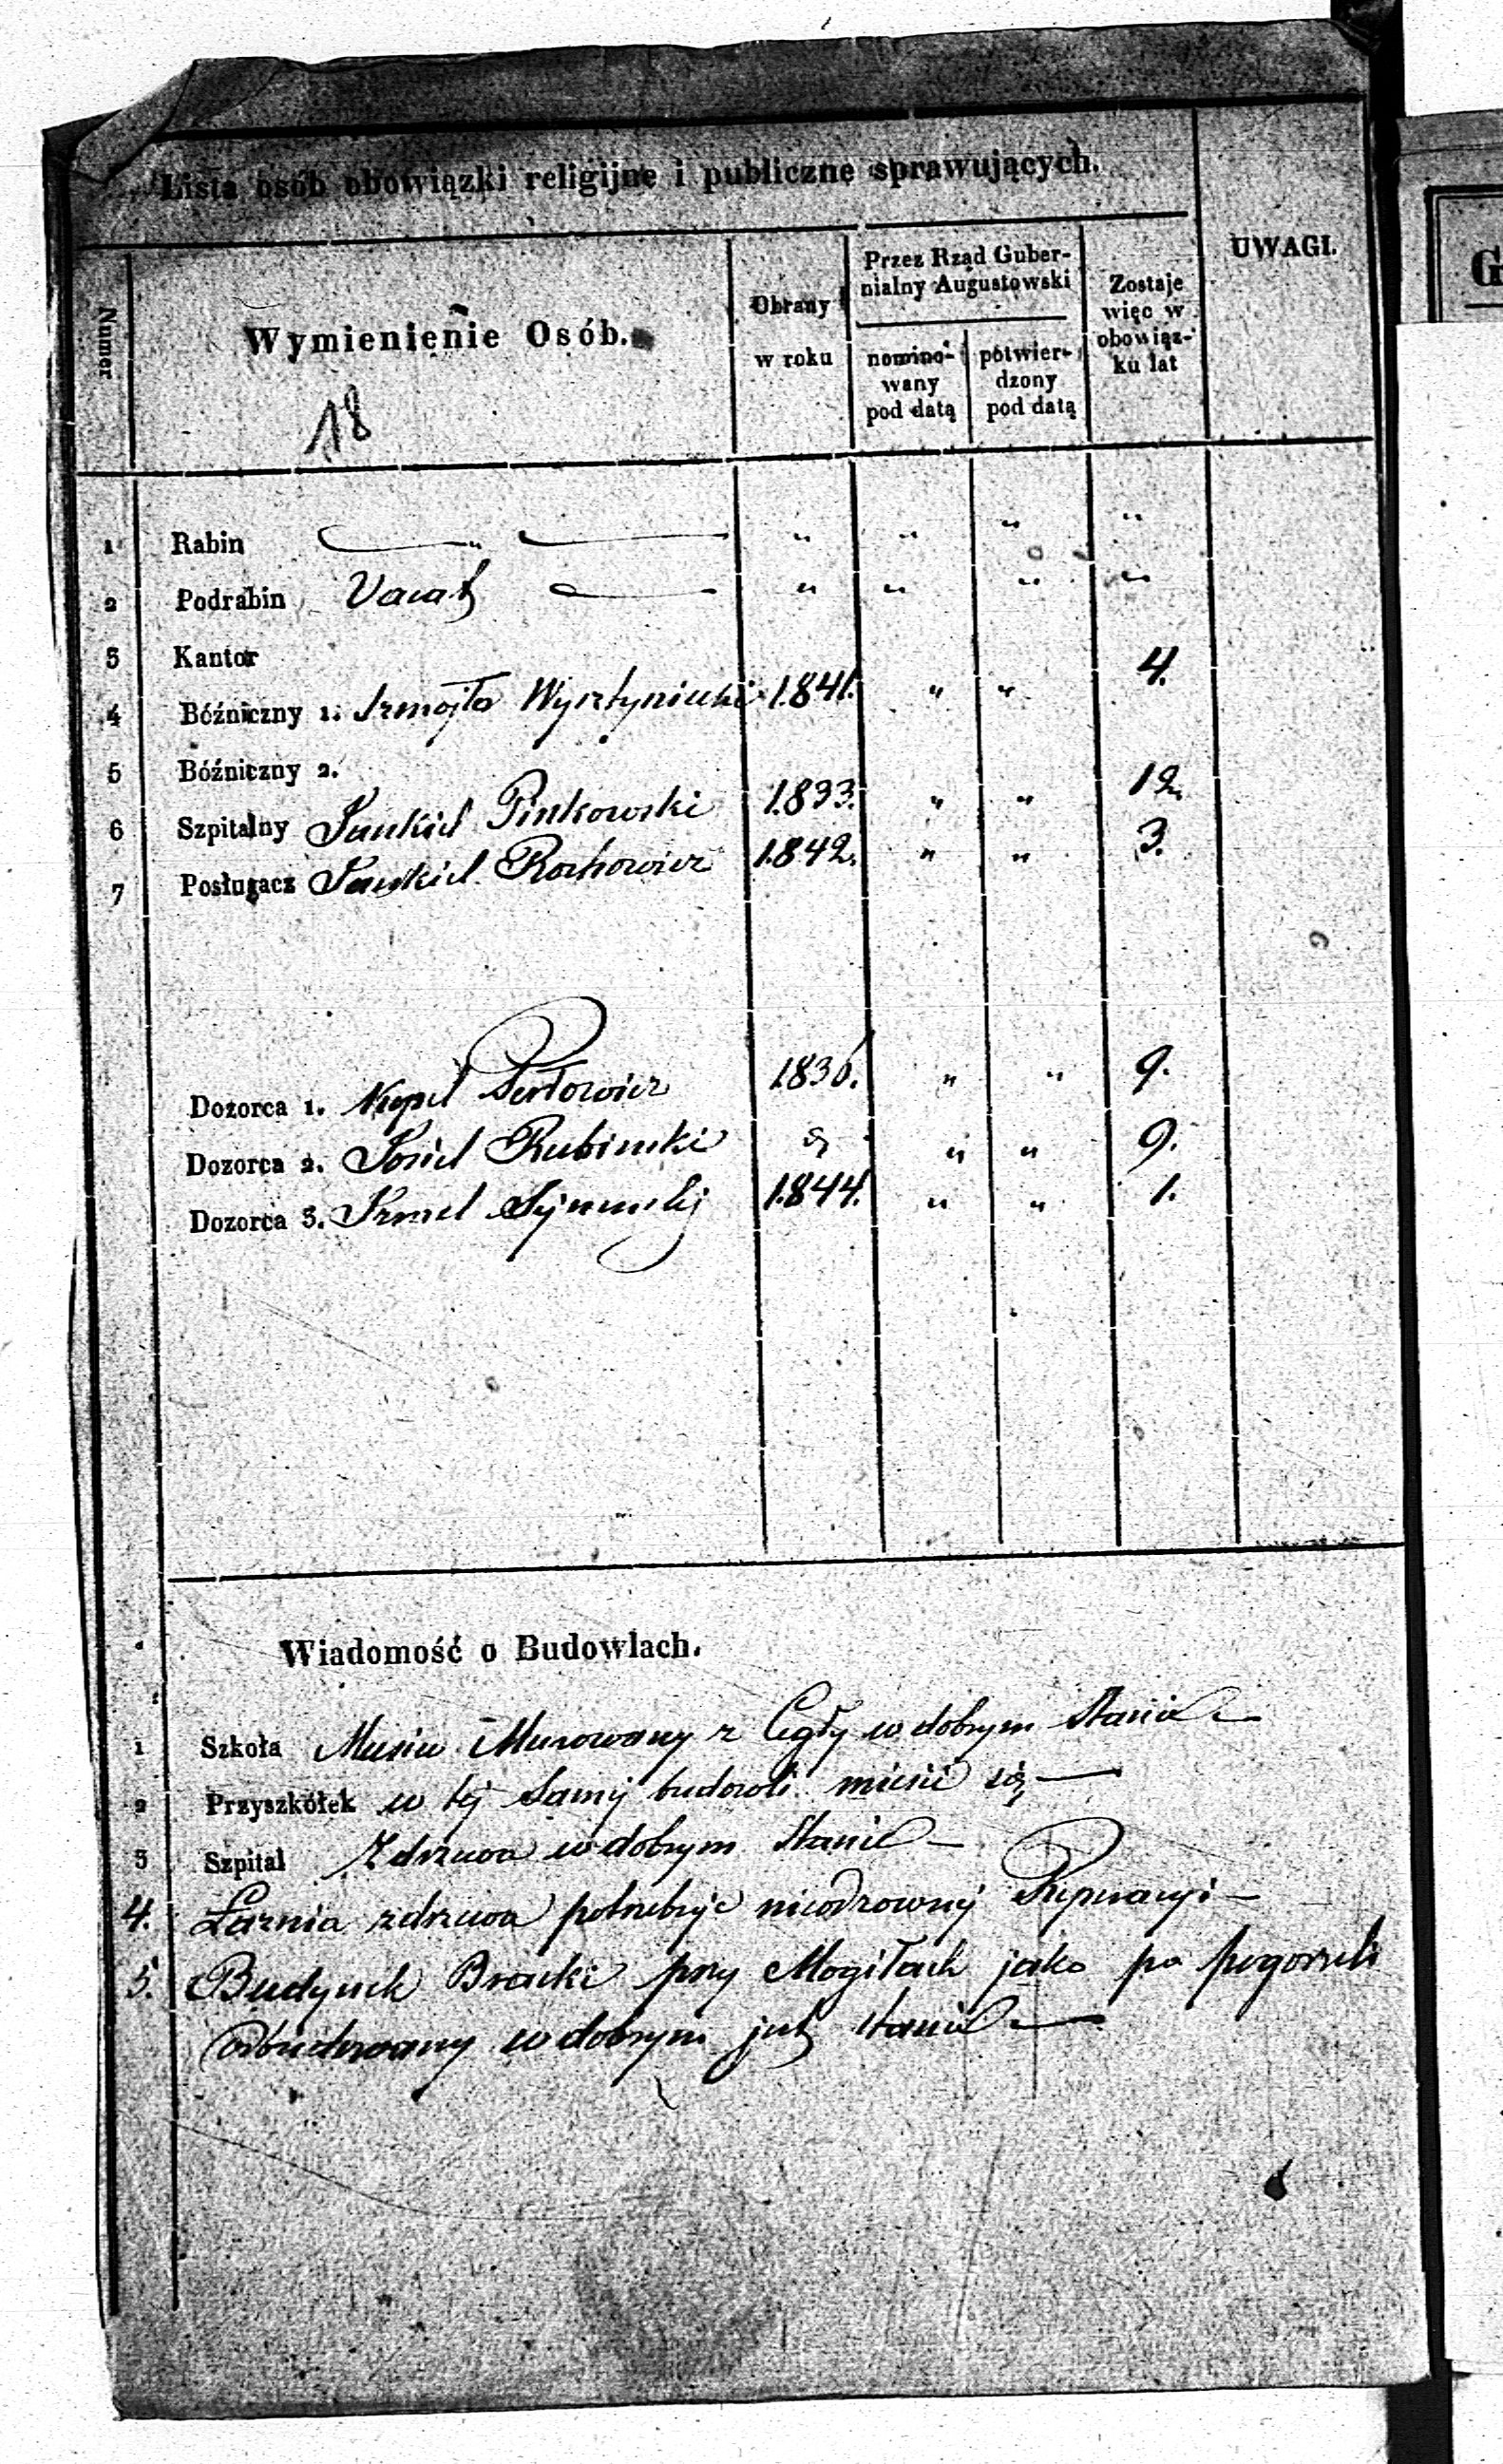 Lista osób obowiązki religijne i publiczne sprawujących.
Numer
Wymienienie Osób.
Obrany w roku
Przez Rząd Gubernialny Augustowski
nomino-wany pod datą
potwier-dzony pod datą
Zostaje więc w obowiąz-ku lat
UWAGI.
G
18
1 Rabin — " — " " " "
2 Podrabin Vacat — " " " "
3 Kantor
4 Bóźniczny 1. Szmojło Wysztyniecki 1841. " " 4.
5 Bóźniczny 2.
6 Szpitalny Jankiel Pinkowski 1833. " " 12.
7 Posługacz Jankiel Rochowicz 1842. " " 3.
Dozorca 1. Perłowicz 1836. " " 9.
Dozorca 2. Rubinski " " 9.
Dozorca 3. Izrael 1844. " " 1.
Wiadomość o Budowlach.
1 Szkoła Murowany z Cegły w dobrym Stanie —
2 Przyszkółek w tej samej budowli mieści się —
3 Szpital Z drzewa w dobrym Stanie —
4. Łaznia z drzewa potrzebuje Reperacyi —
5. Budynek Bracki przy Mogiłach jako po pogorzeli
Odbudowany w dobrym już stanie —